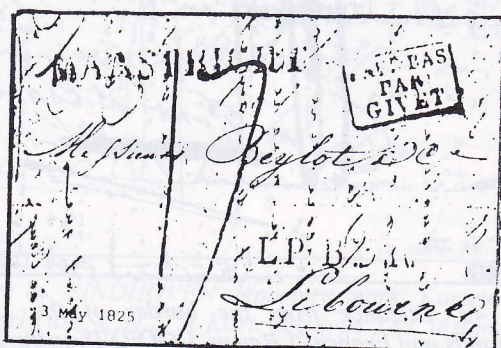 MAASTRICHT
PAYS-BAS
PAR
GIVET
17
Messieurs Beylot & Ce
L.P.B.2.R.
Libourne
3 May 1825